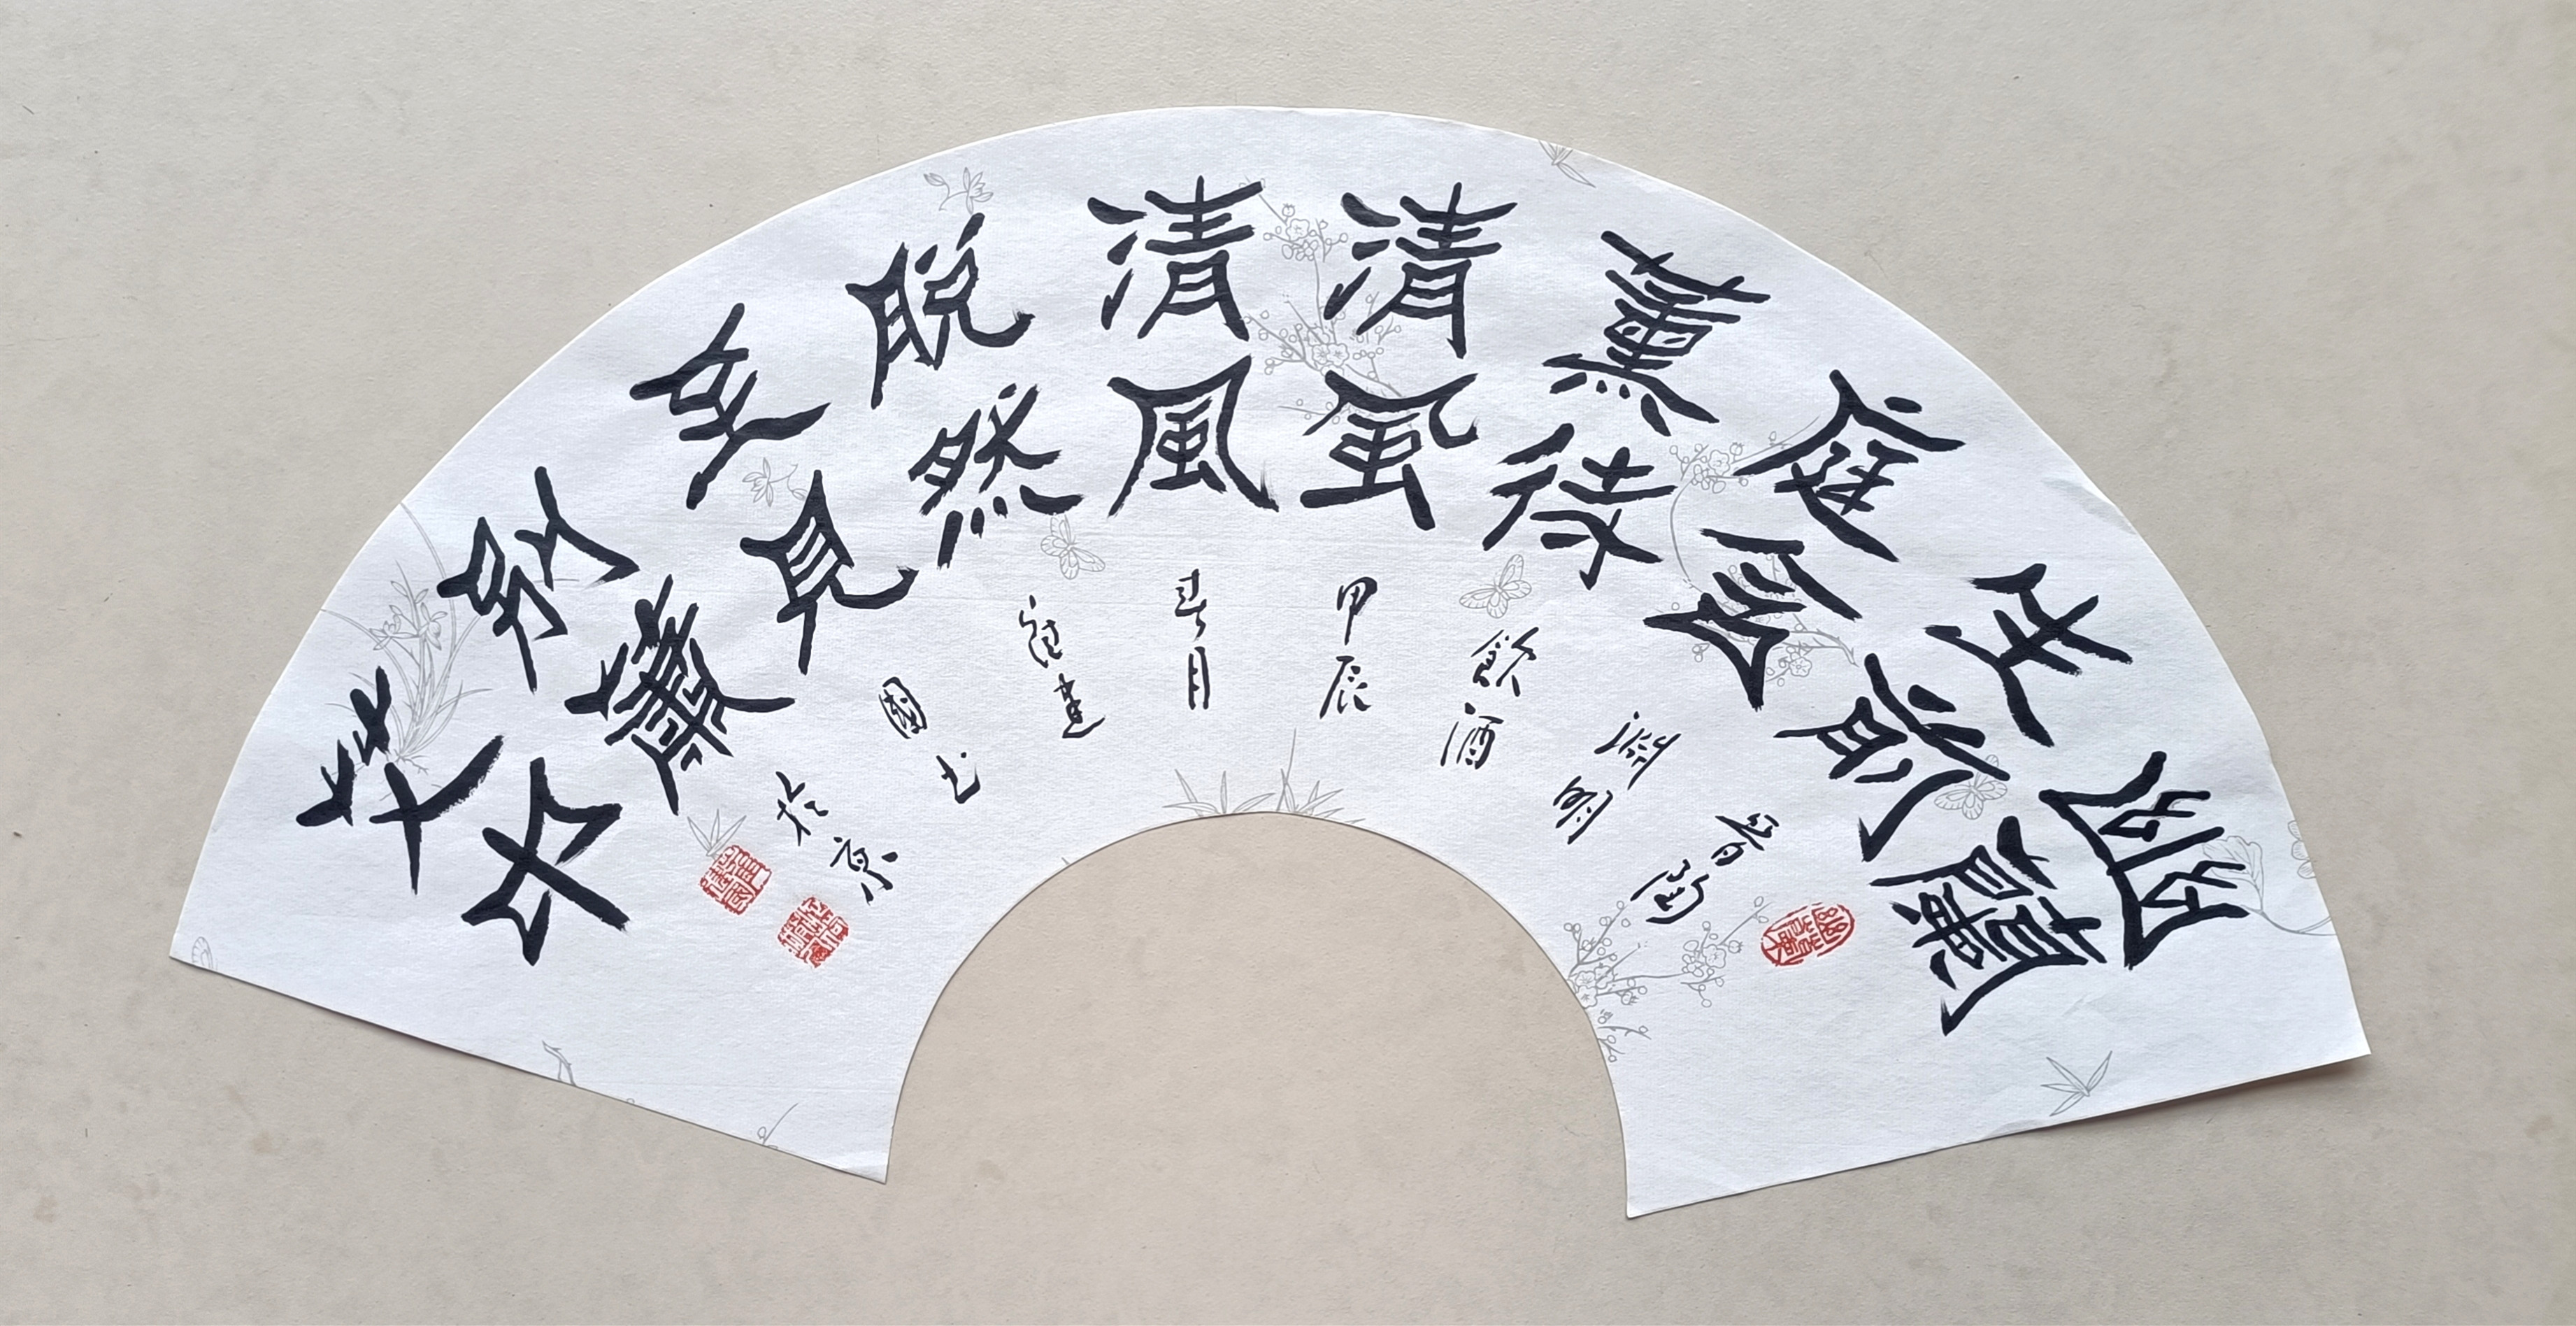 幽蘭
生前
庭含
薰待
清風
清風
脫然
至見
別蕭
艾中
晉陶
淵明
飲酒
甲辰
春月
建
國书
於京